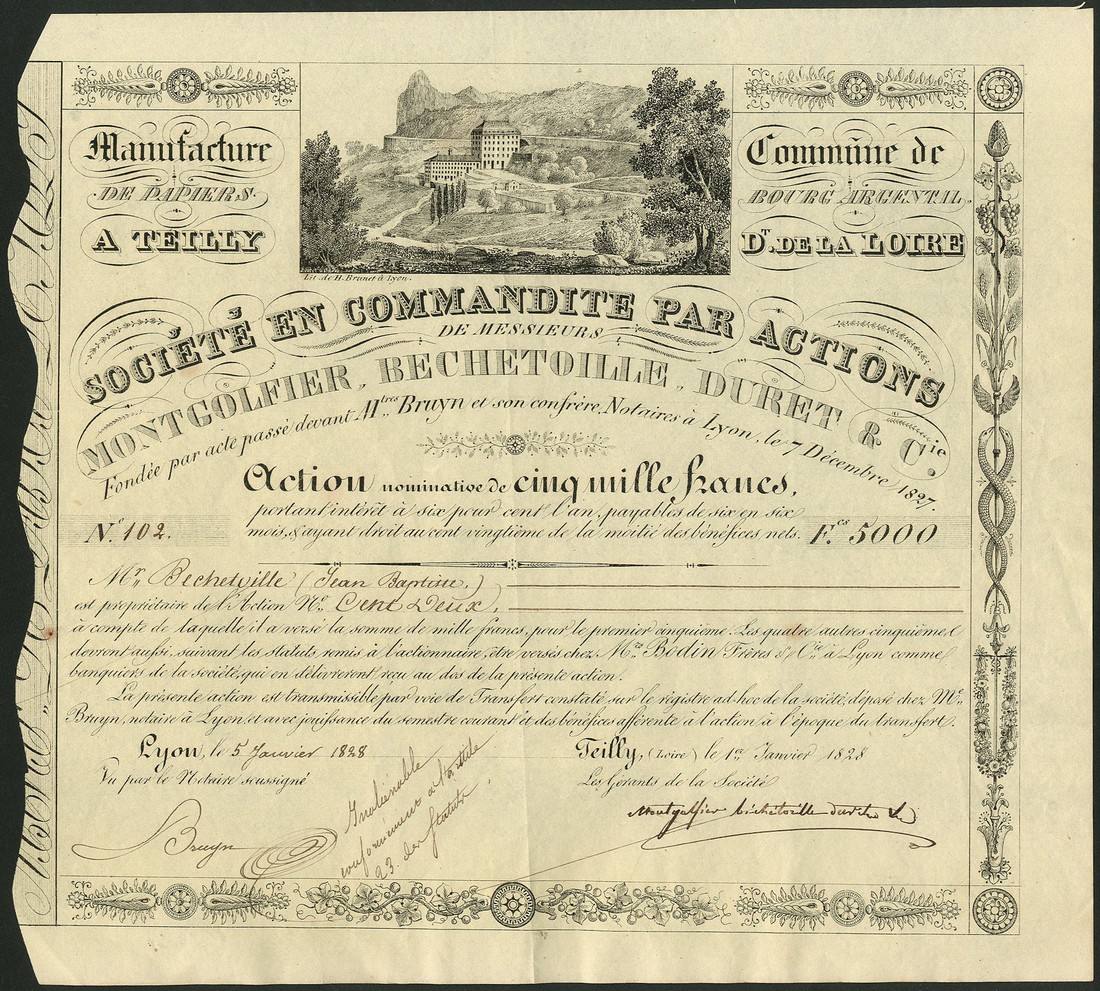 Manufacture
DE PAPIERS
A TEILLY
Commune de
BOURG ARGENTAL
D.T DE LA LOIRE
Lit. de H. Brunet à Lyon.
SOCIÉTÉ EN COMMANDITE PAR ACTIONS
DE MESSIEURS
MONTGOLFIER, BECHETOILLE, DURET & Cie.
Fondée par acte passé devant M.tres Bruyn et son confrère, Notaires à Lyon, le 7 Décembre 1827.
Action nominative de cinq mille francs,
portant intérêt à six pour cent l'an, payables de six en six
mois, & ayant droit au cent vingtième de la moitié des bénéfices nets.
N.o 102.
F.cs 5000
Mr. Bechetoille (Jean Baptiste.)
est propriétaire de l'Action No. Cent Deux,
à compte de laquelle il a versé la somme de mille francs, pour le premier cinquième. Les quatre autres cinquièmes
devront aussi, suivant les statuts remis à l'actionnaire, être versés chez Mrs. Bodin Frères & Cie. à Lyon comme
banquiers de la société, qui en délivreront reçu au dos de la présente action.
La présente action est transmissible par voie de Transfert constaté sur le registre ad hoc de la société, déposé chez Me.
Bruyn, notaire à Lyon, et avec jouissance du semestre courant et des bénéfices afférents à l'action à l'époque du transfert.
Lyon, le 5 Janvier 1828
Teilly, (Loire) le 1er Janvier 1828
Vu par le Notaire soussigné
Les Gérants de la Société
Bruyn
Inaliénable
conformément à l'article
23 des statuts
Montgolfier béchetoille duret & C